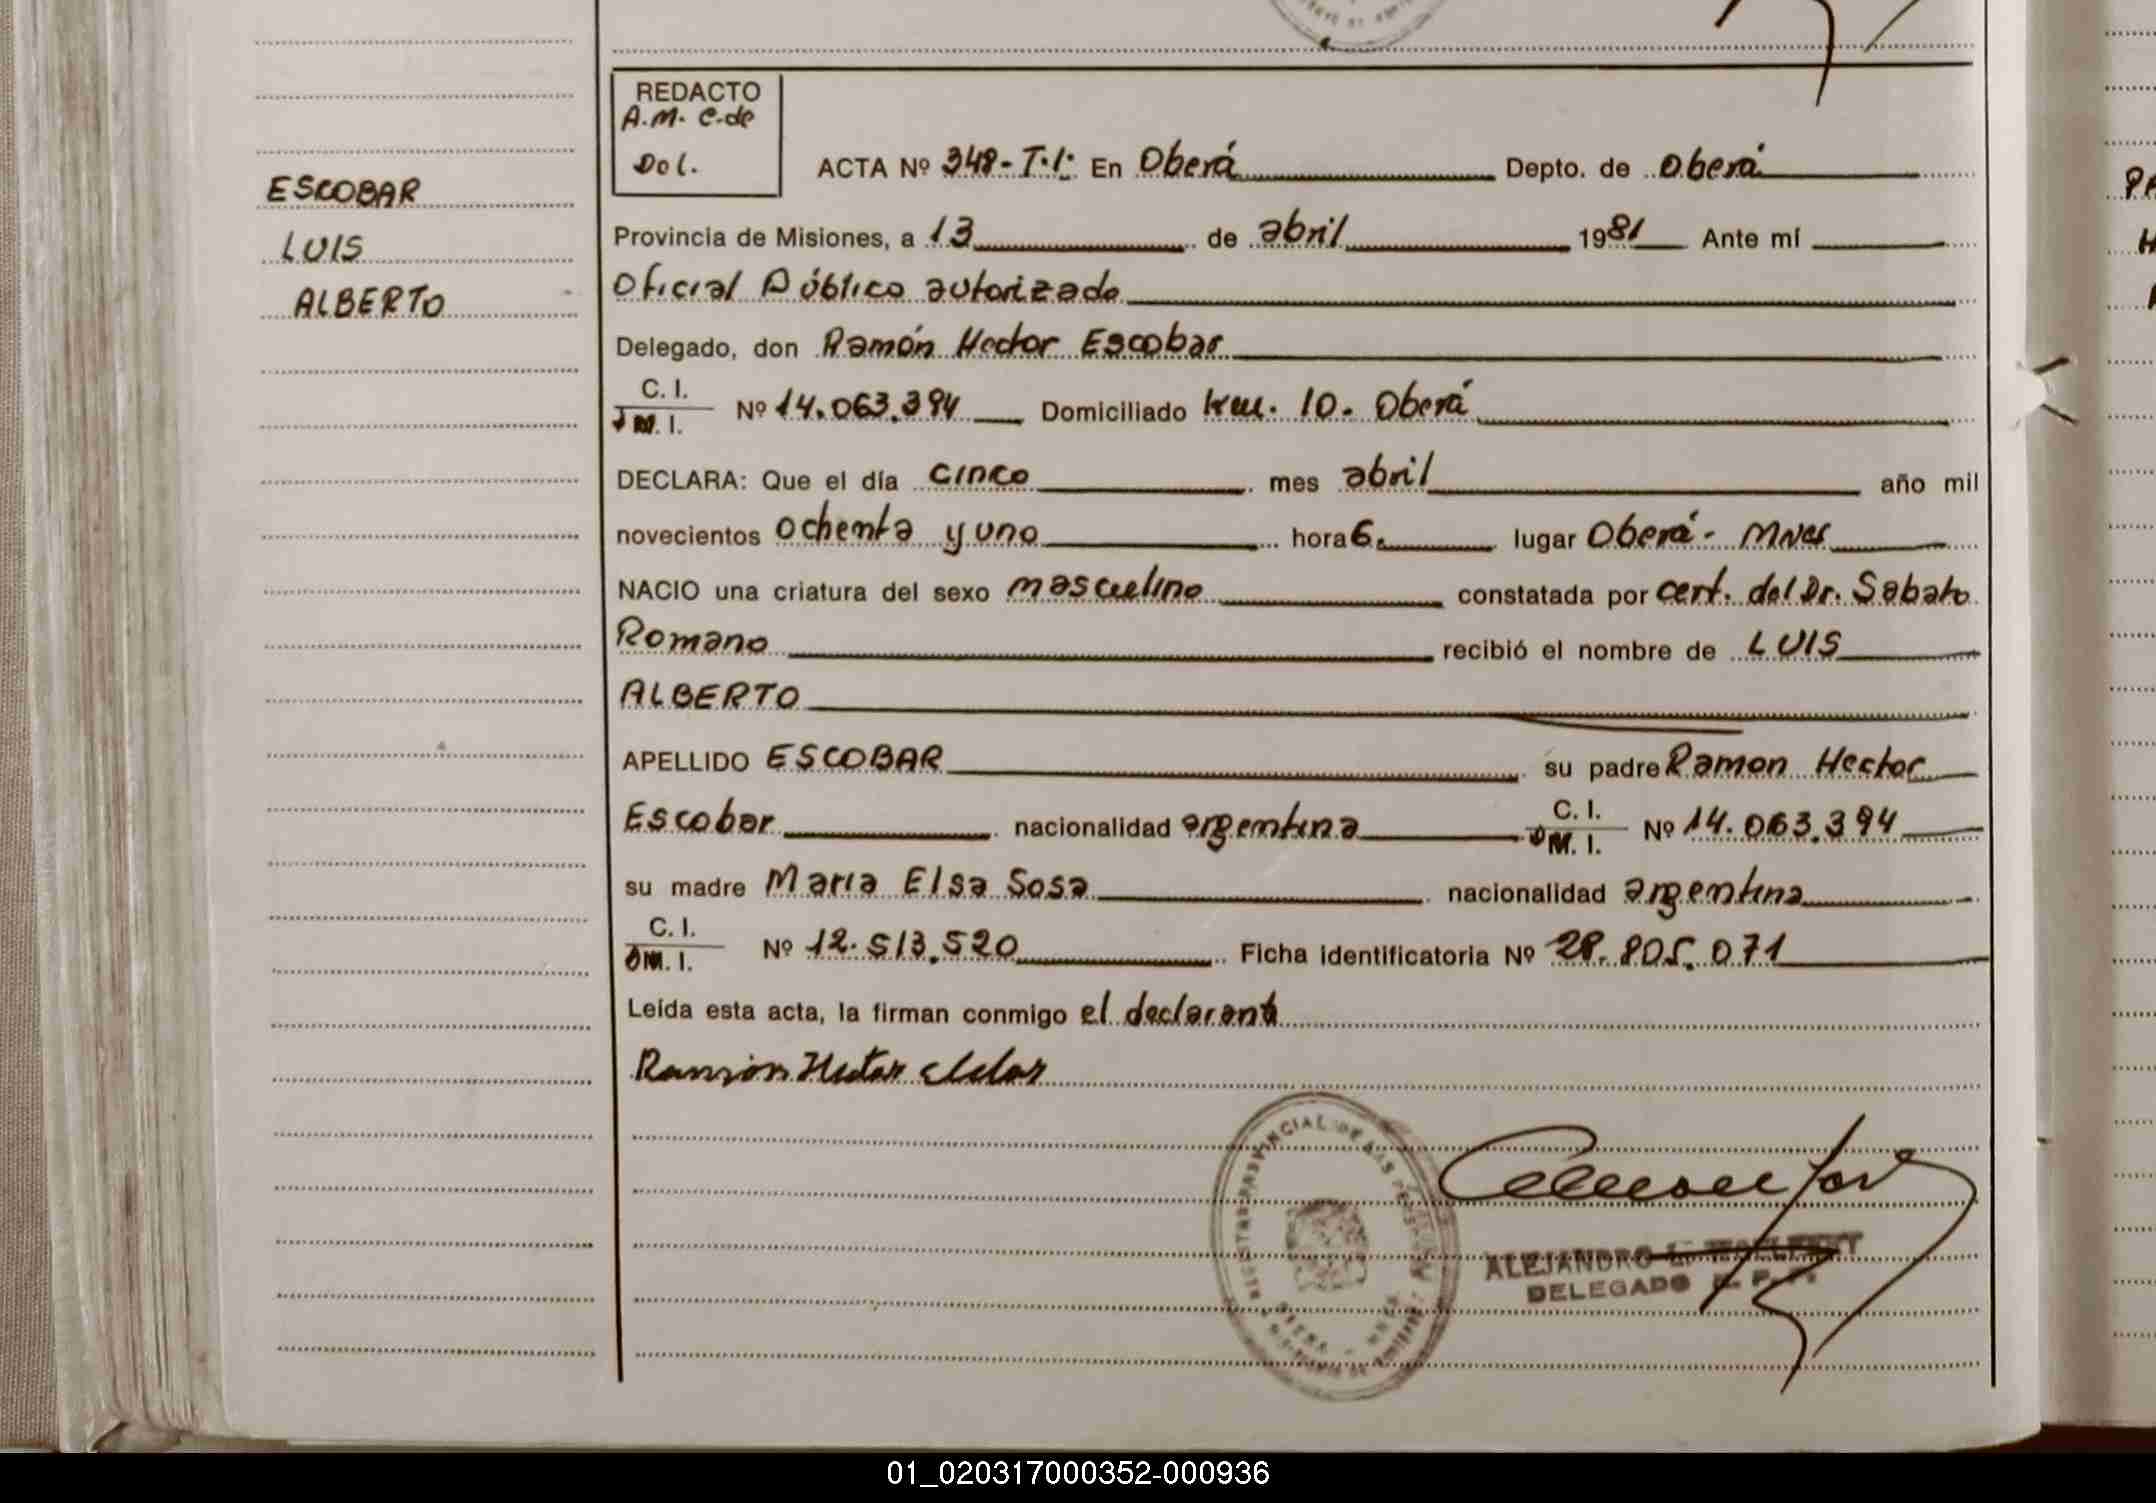 ESCOBAR
LUIS
ALBERTO
REDACTO
A.M. C. de
Dol.
ACTA Nº 348-T.I: En Oberá Depto. de Oberá
Provincia de Misiones, a 13 de abril 1981 Ante mí
Oficial Público autorizado
Delegado, don Ramón Hector Escobar
C. I.
M. I. Nº 14.063.394 Domiciliado km. 10. Oberá
DECLARA: Que el día cinco mes abril año mil
novecientos ochenta y uno hora 6. lugar Oberá - Mnes
NACIO una criatura del sexo masculino constatada por cert. del Dr. Sabato
Romano recibió el nombre de LUIS
ALBERTO
APELLIDO ESCOBAR su padre Ramon Hector
Escobar nacionalidad argentina C. I. M. I. Nº 14.063.394
su madre Maria Elsa Sosa nacionalidad argentina
C. I.
M. I. Nº 12.513.520 Ficha identificatoria Nº 28.805.071
Leída esta acta, la firman conmigo el declarante
Ramón Hector
ALEJANDRO
DELEGADO
01_020317000352-000936